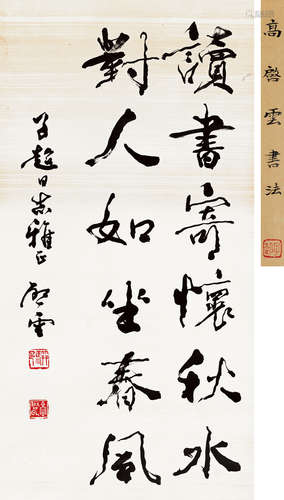 高啓雲書法
讀書寄懷秋水
對人如坐春風
超同志雅正 啓雲